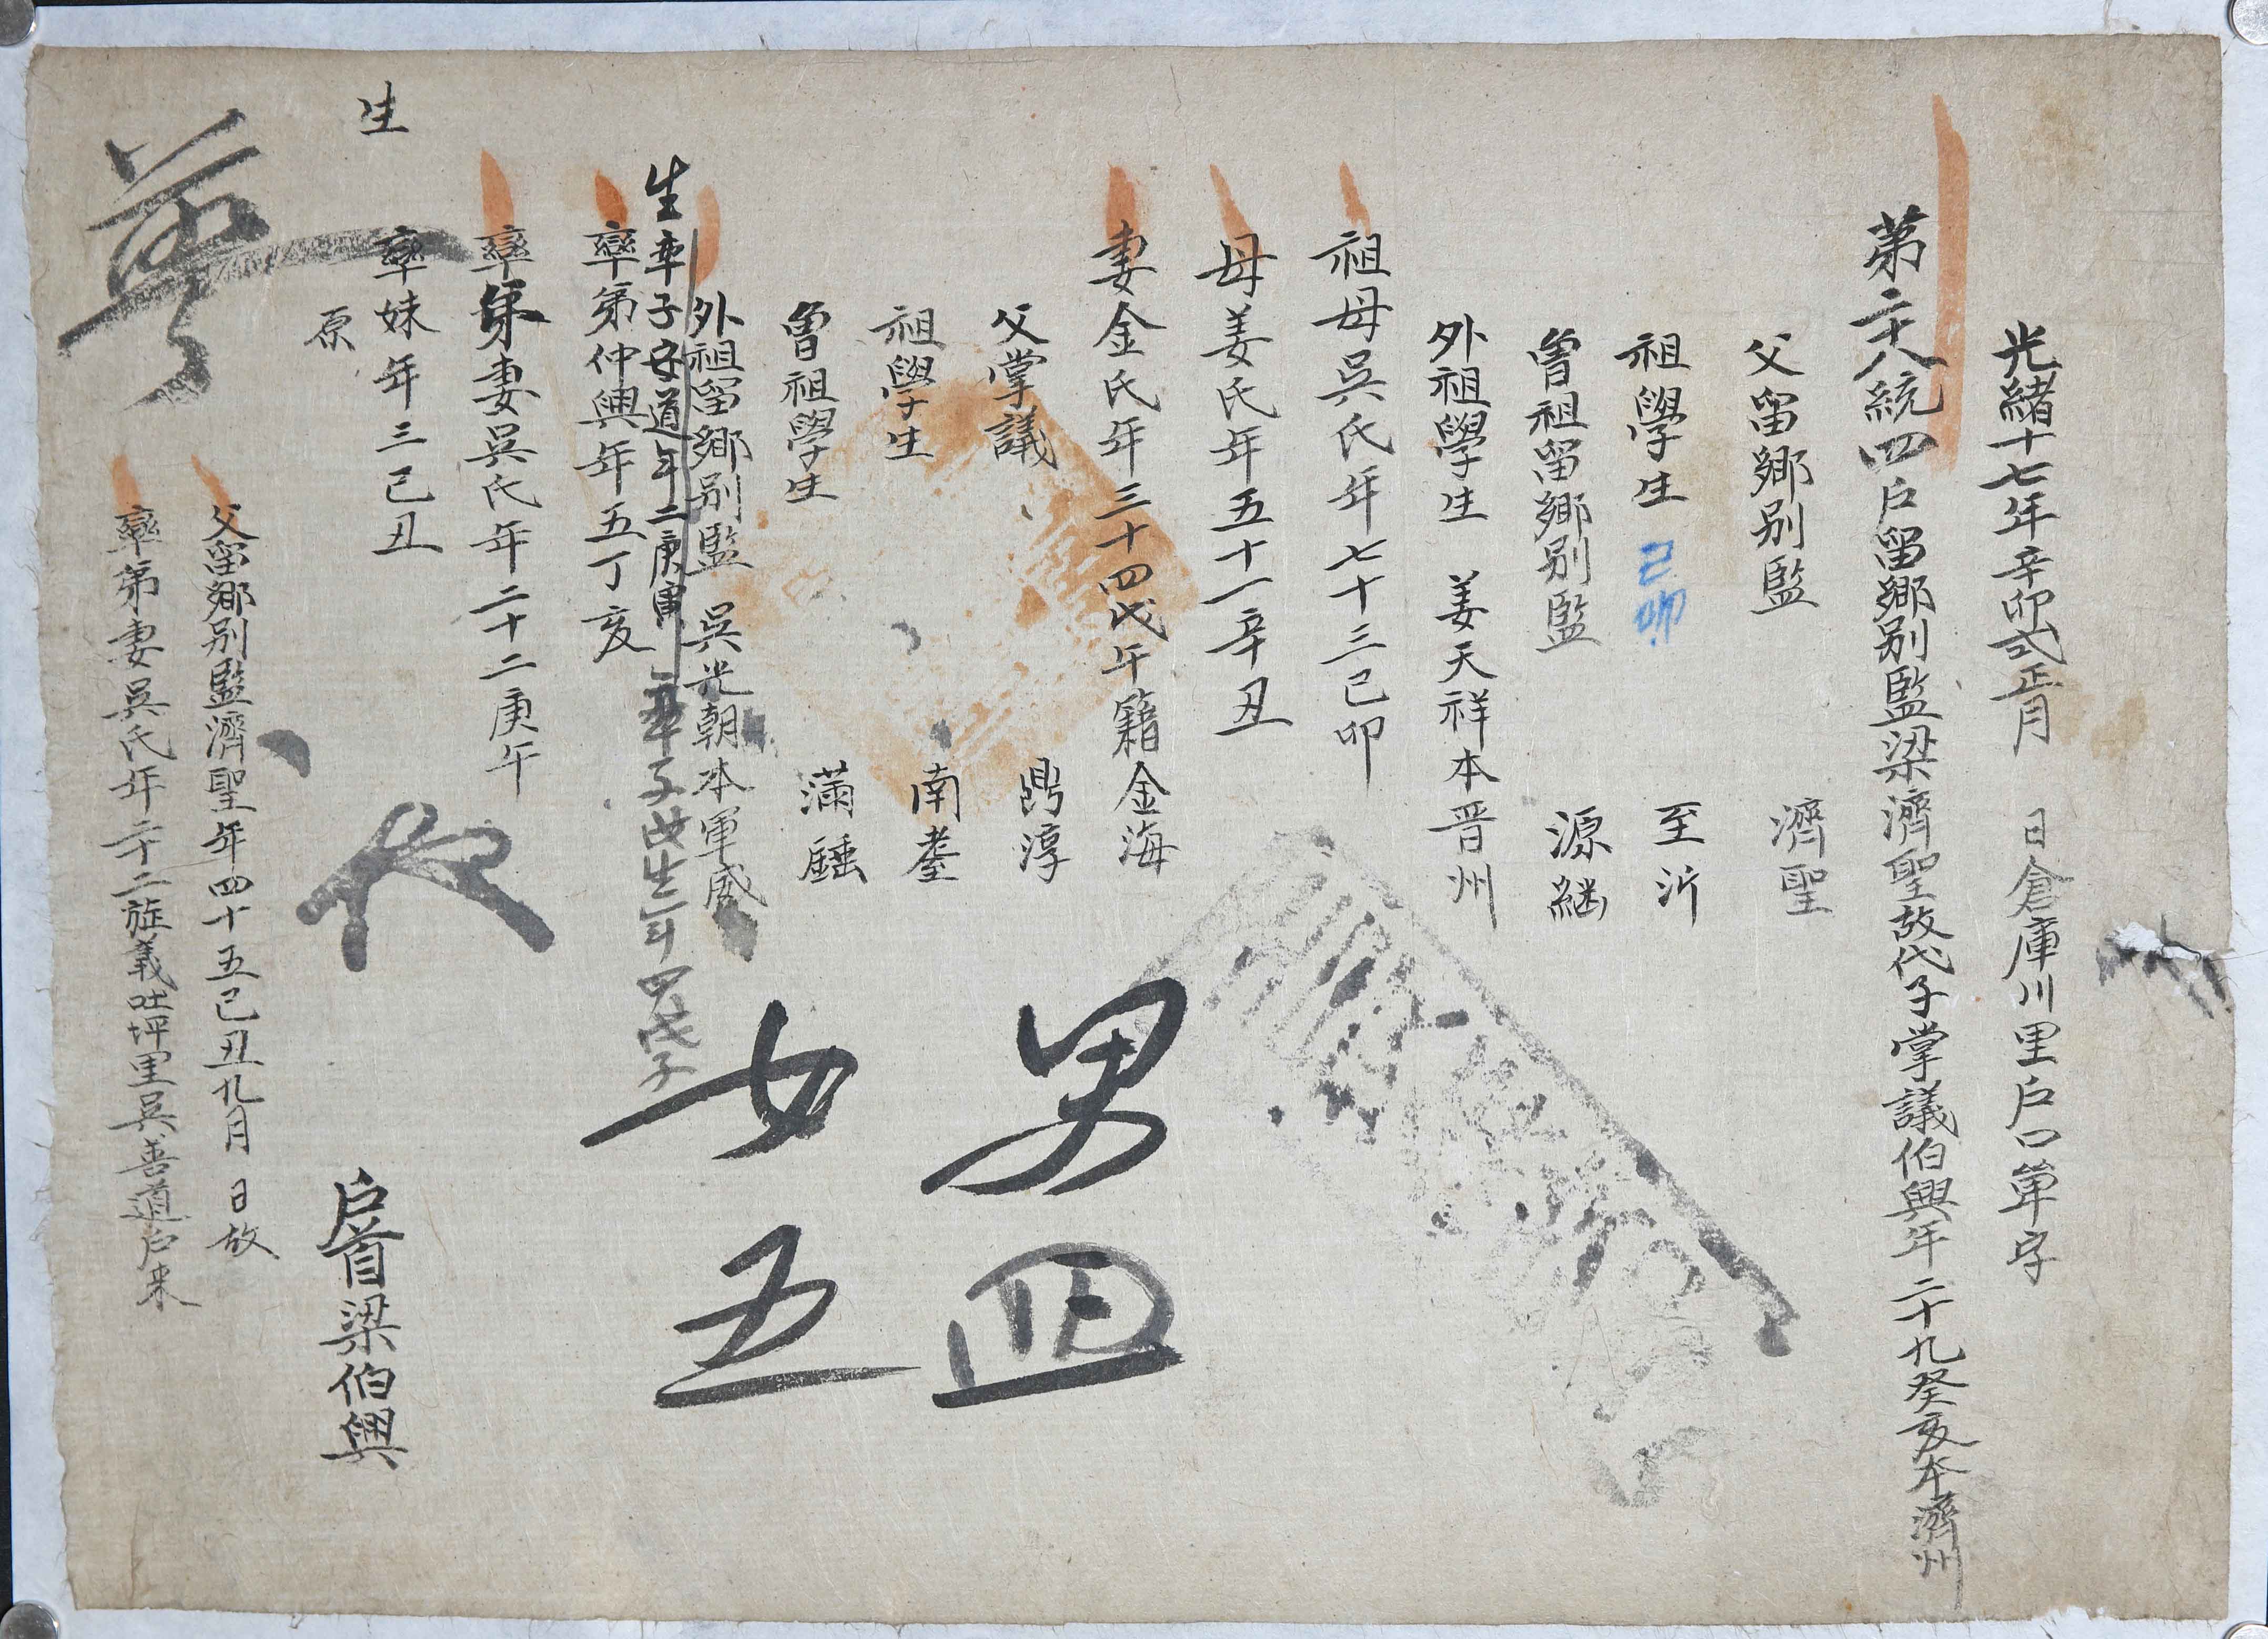 光緒十七年辛卯式正月 日倉庫川里戶口單字
第二十八統四戶留鄉別監梁濟聖故代子掌議伯興年二十九癸亥本濟州
父留鄉別監 濟聖
祖學生 己卯 至沂
曾祖留鄉別監 源継
外祖學生 姜天祥本晋州
祖母吳氏年七十三己卯
母姜氏年五十一辛丑
妻金氏年三十四戊午籍金海
父掌議 鼎淳
祖學生 南
曾祖學生 滿錘
外祖留鄉別監 吳光朝本軍威
生率子安道年二庚寅
率子 生 年四戊子
率弟仲興年五丁亥
率弟妻吳氏年二十二庚午
生 率妹年三己丑
原
男四
女五
戶首梁伯興
父留鄉別監濟聖年四十五己丑九月 日故
率弟妻吳氏年二十二旌義吐坪里吳善道戶来